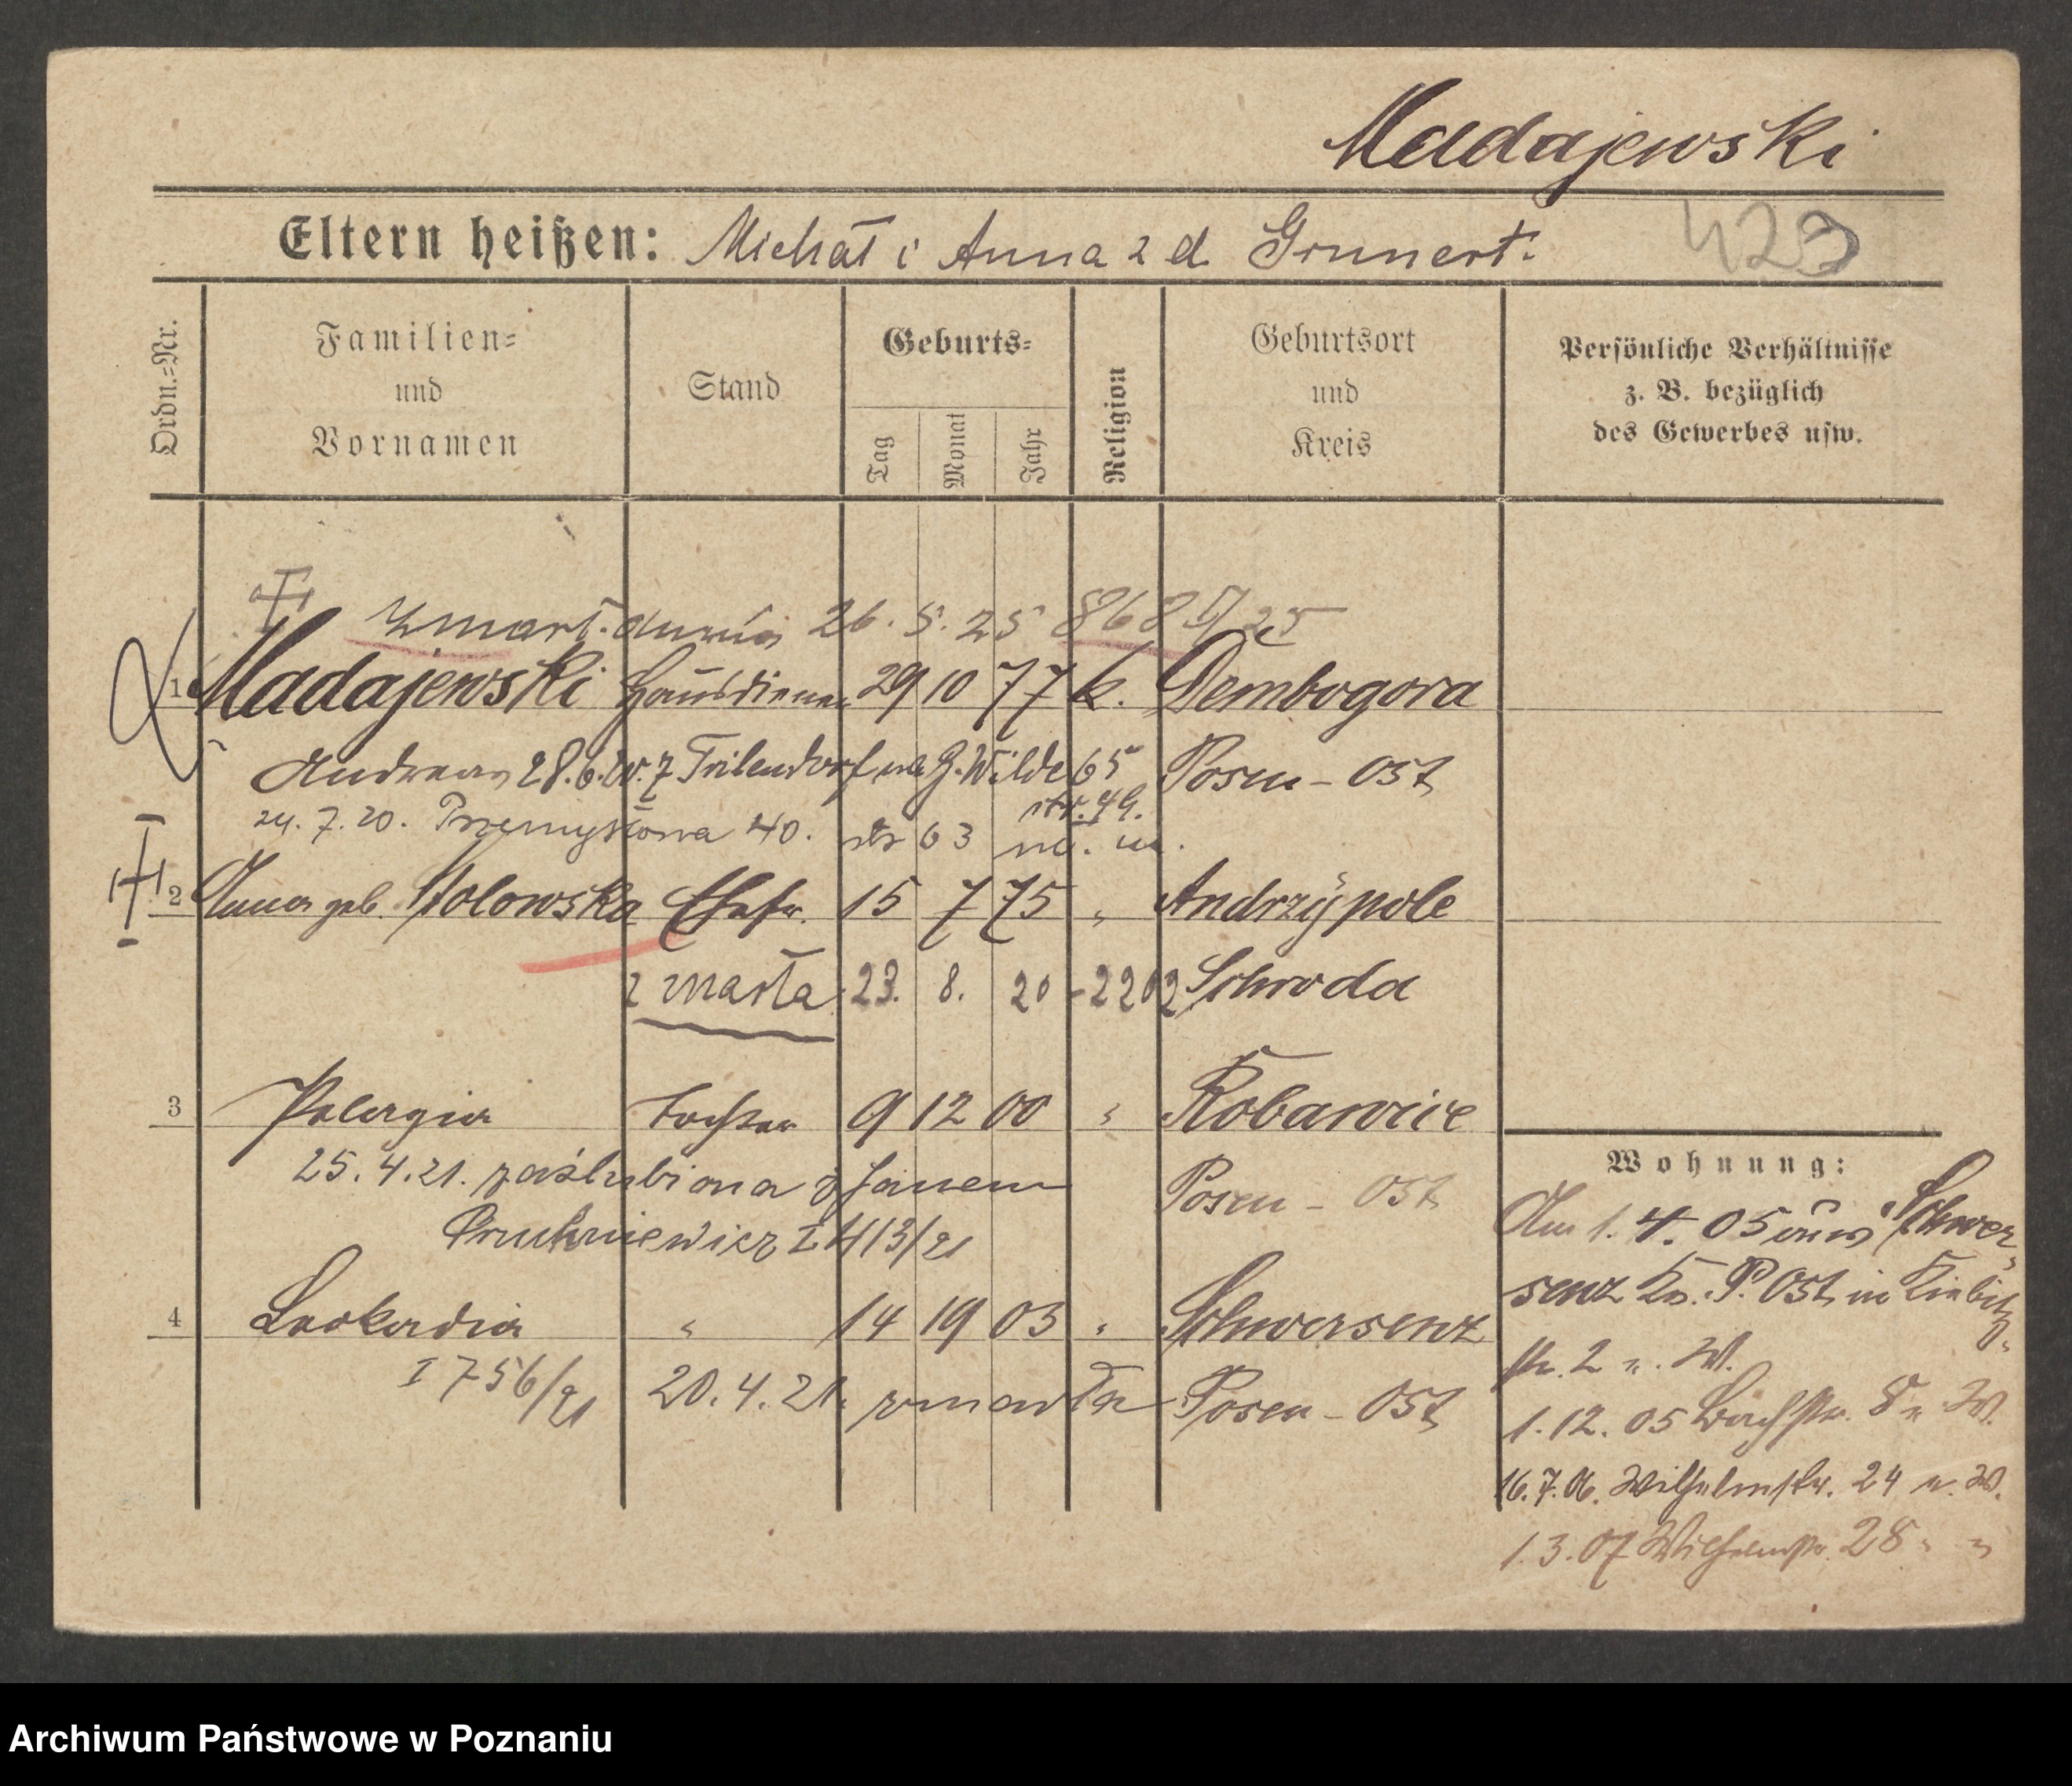 Madajewski
Eltern heißen: Michał i Anna z d. Grunert.
423
Ordn.=Nr.
Familien=
und
Vornamen
Stand
Geburts=
Tag
Monat
Jahr
Religion
Geburtsort
und
Kreis
Persönliche Verhältnisse
z. B. bezüglich
des Gewerbes usw.
zmarł. dnia 26. 5. 25 868 /25
1 Madajewski Hausdiener 29 10 77 k. Dembogora
Andreas 28.6. 7 G. Wilde 65 Posen - Ost
str. 49.
24. 7. 20. Przemysłowa 40. 63
2 Anna geb. Stolowska Ehefr. 15 7 75 " Andrzÿpole
zmarła 23. 8. 20 - 2202 Schroda
3 Pelagia Tochter 9 12 00 " Kobarnice
25. 4. 21. zaślubiona z Janem Posen - Ost
Pruchniewicz I 413/21
4 Leokadia " 14 19 03 " Schwersenz
I 756/21 20. 4. 21. zmarła Posen - Ost
Wohnung:
Am 1. 4. 05 aus Schwer=
senz Kr. P. Ost, in Kiebitz=
str. 2 n. W.
1. 12. 05 Bachstr. 8 n. W.
16. 7. 06. Wilhelmstr. 24 n. W.
1. 3. 07 Wilhelmstr. 28 " "
Archiwum Państwowe w Poznaniu